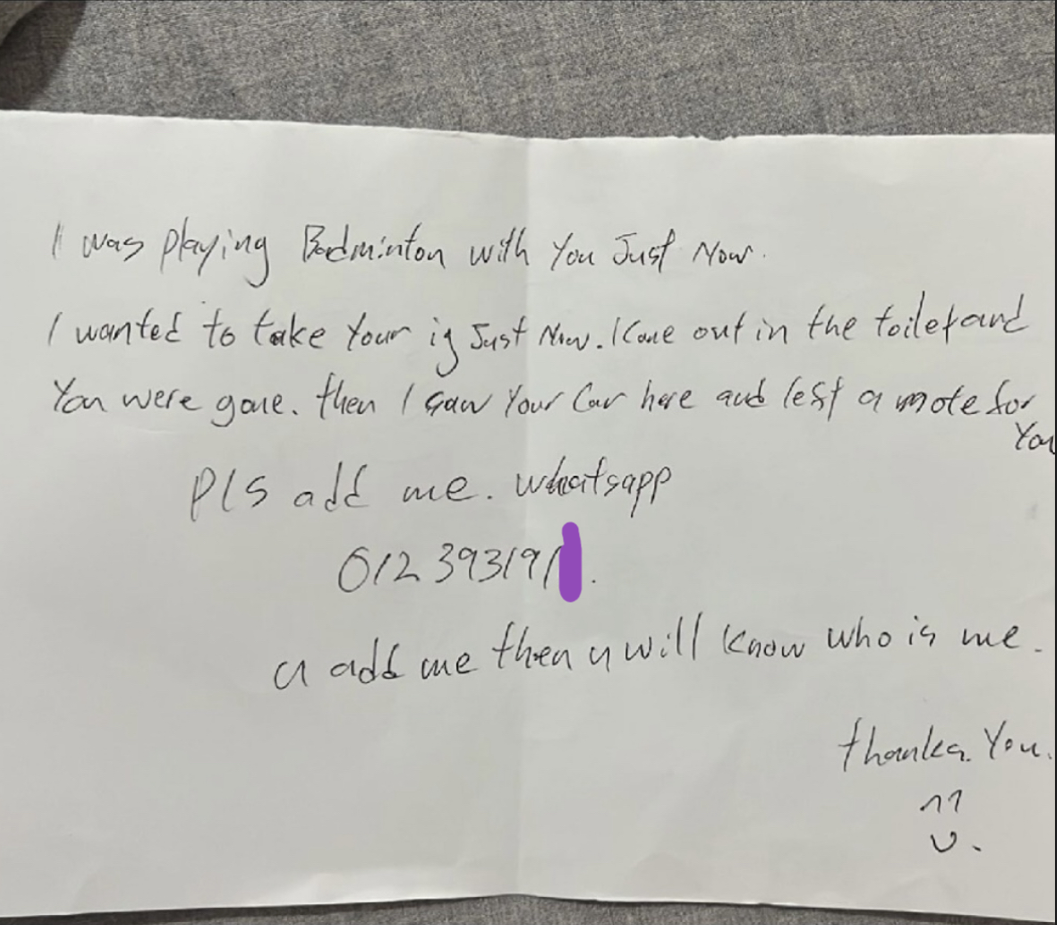 I was playing Badminton with You Just Now.
I wanted to take Your ig Just Now. I Came out in the toilet and
You were gone. then I saw Your Car here and left a mote for
You
Pls add me. whatsapp
012 393191
u add me then u will know who is me.
thanks. You.